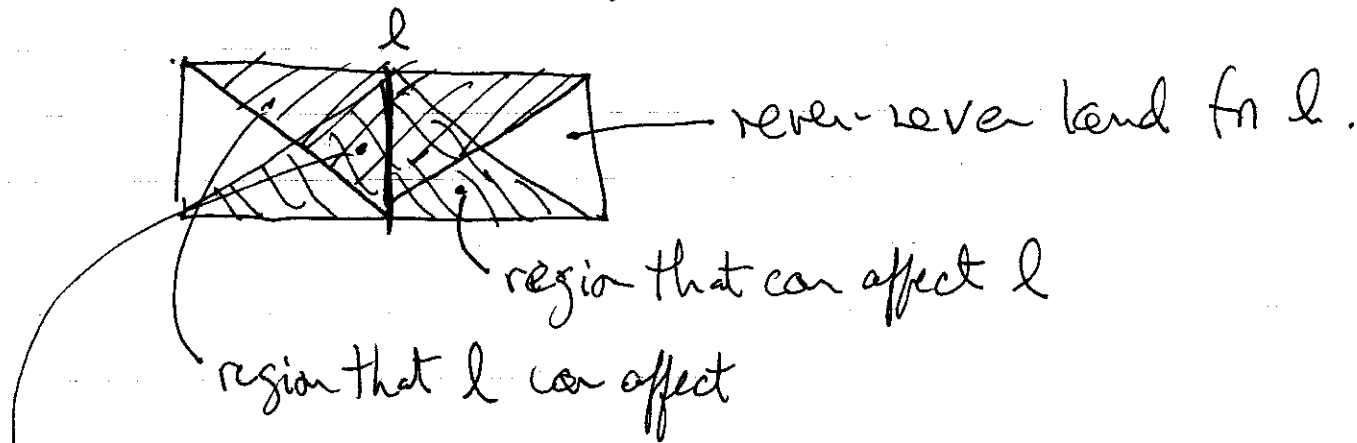 l
never-never land for l.
region that can affect l
region that l can affect